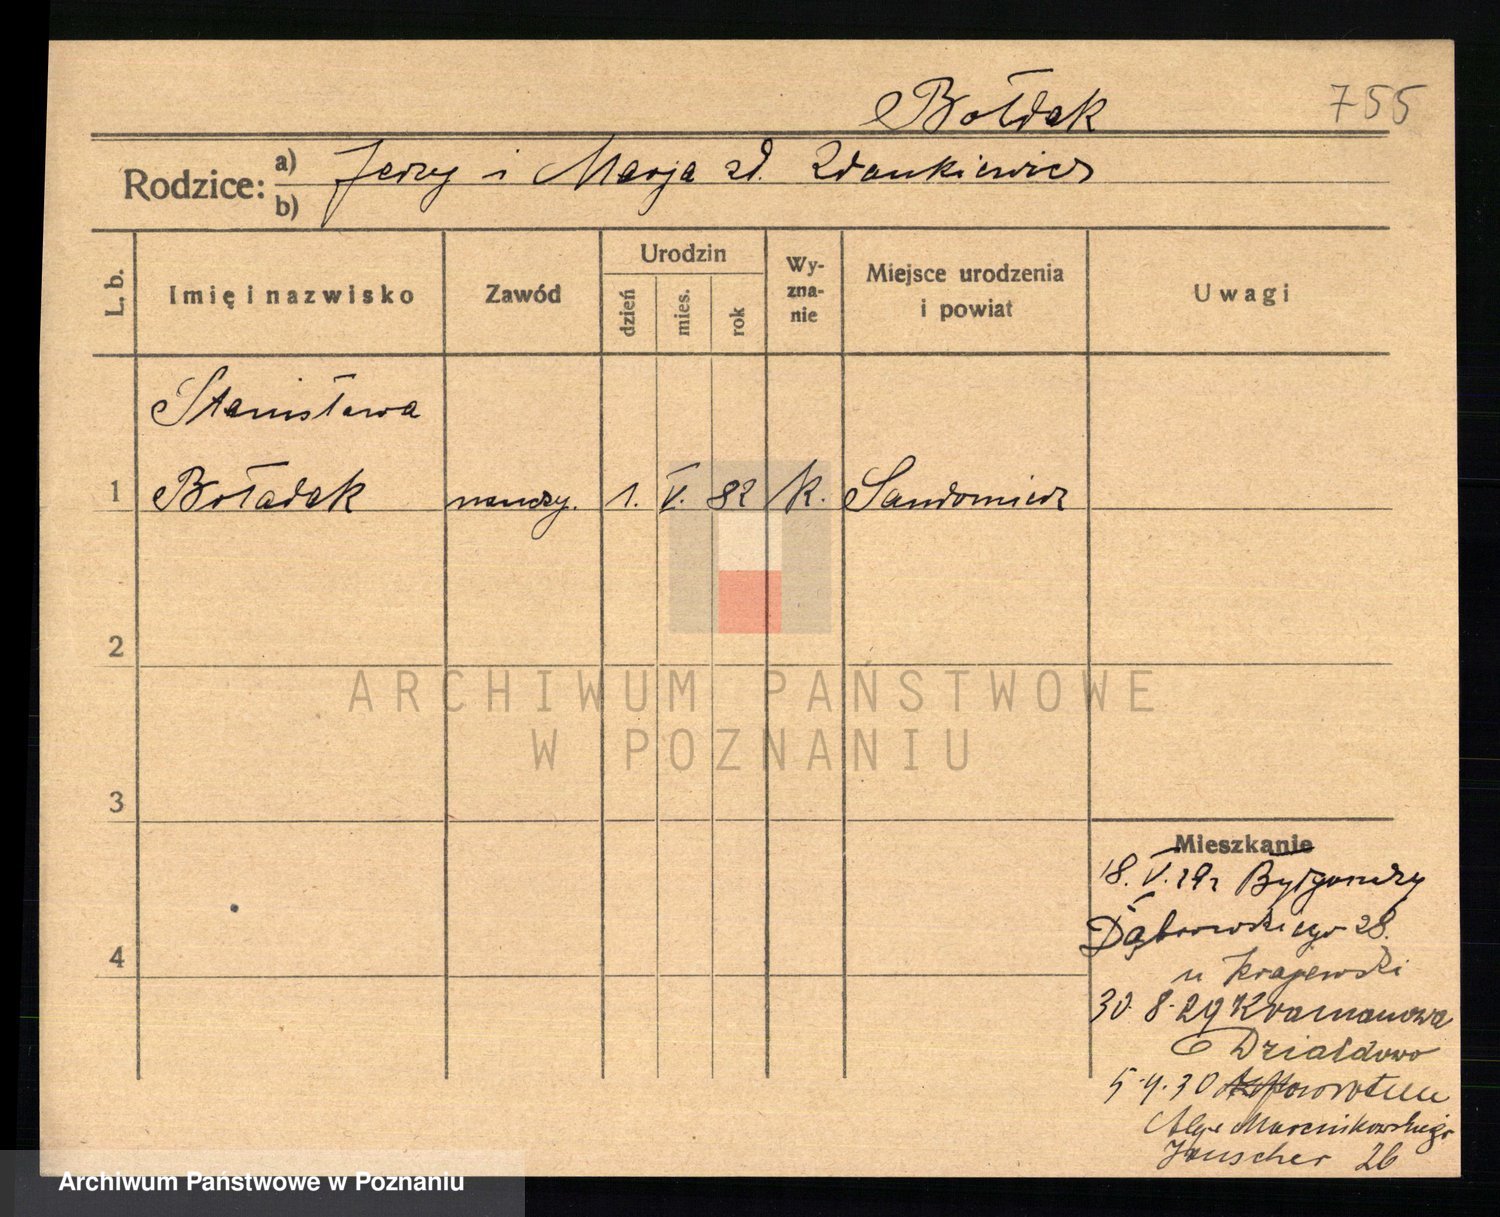 Bołdak 755
Rodzice: a) Jerzy i Marja zd. Zdankiewicz
b)
L. b. Imię i nazwisko Zawód Urodzin dzień mies. rok Wy-zna-nie Miejsce urodzenia i powiat Uwagi
Stanisława
1 Bołądak nauczy. 1. V. 82 k. Sandomierz
2
ARCHIWUM PAŃSTWOWE
W POZNANIU
3
Mieszkanie
18. V. 29 r Bydgoszczy
Dąbrowskiego 28.
4
u Krajewski
30. 8. 29
Działdowo
5. 4. 30
Marcinkowskiego
26
Archiwum Państwowe w Poznaniu